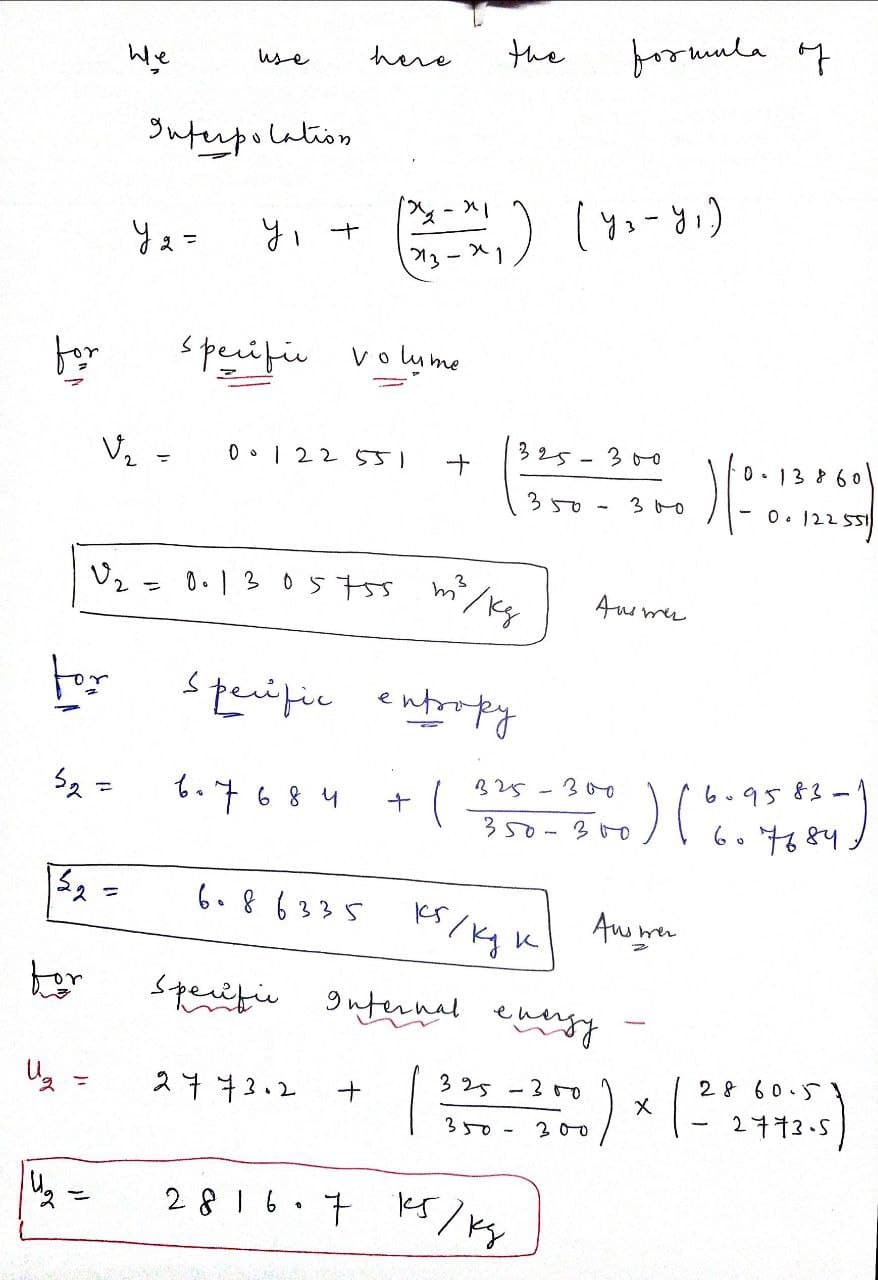 We use here the formula of
Interpolation
y₂ = y₁ + ((x₂ - x₁)/(x₃ - x₁)) (y₃ - y₁)
for specific volume
V₂ = 0.122551 + ((325 - 300)/(350 - 300)) (0.13860 - 0.122551)
V₂ = 0.1305755 m³/kg Answer
for specific entropy
S₂ = 6.7684 + ((325 - 300)/(350 - 300)) (6.9583 - 6.7684)
S₂ = 6.86335 kJ/kg K Answer
for specific Internal energy -
U₂ = 2773.2 + ((325 - 300)/(350 - 300)) × (2860.5 - 2773.5)
U₂ = 2816.7 kJ/kg